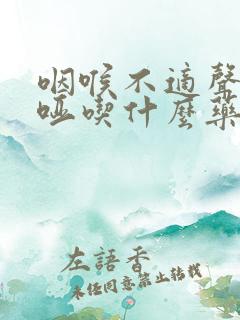 咽喉不適聲
啞喫什麼藥
左語香
未經同意禁止轉載